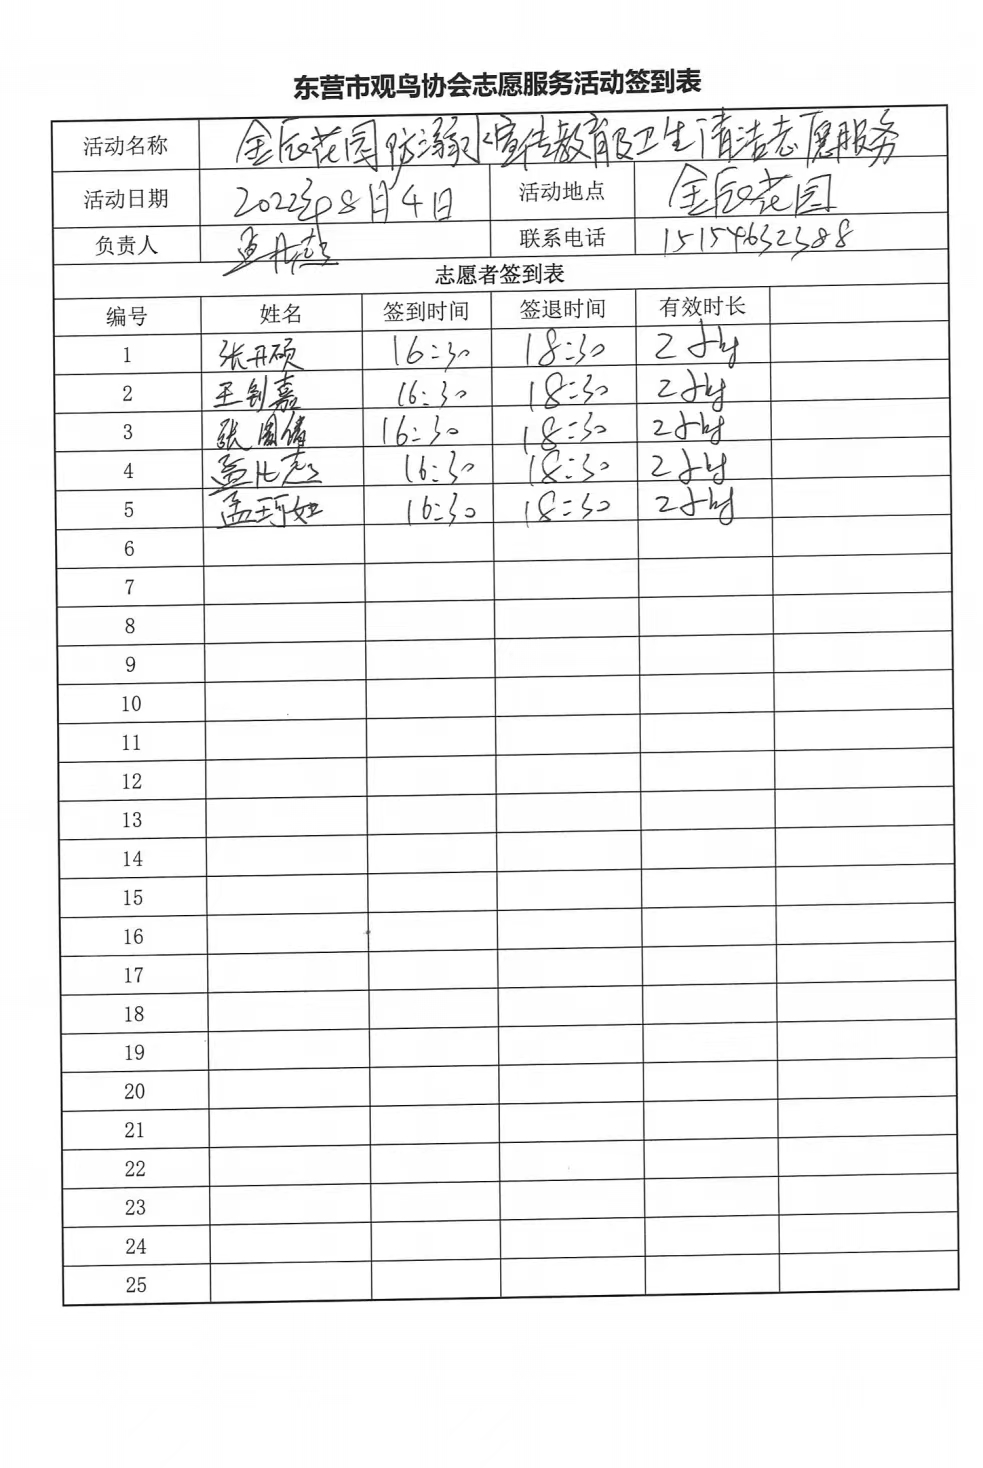 东营市观鸟协会志愿服务活动签到表
活动名称 金辰花园防溺水宣传教育及卫生清洁志愿服务
活动日期 2022年8月4日 活动地点 金辰花园
负责人 联系电话 15154632388
志愿者签到表
编号 姓名 签到时间 签退时间 有效时长
1 张丹硕 16:30 18:30 2小时
2 王钊嘉 16:30 18:30 2小时
3 张 倩 16:30 18:30 2小时
4 孟 16:30 18:30 2小时
5 孟珂如 16:30 18:30 2小时
6
7
8
9
10
11
12
13
14
15
16
17
18
19
20
21
22
23
24
25